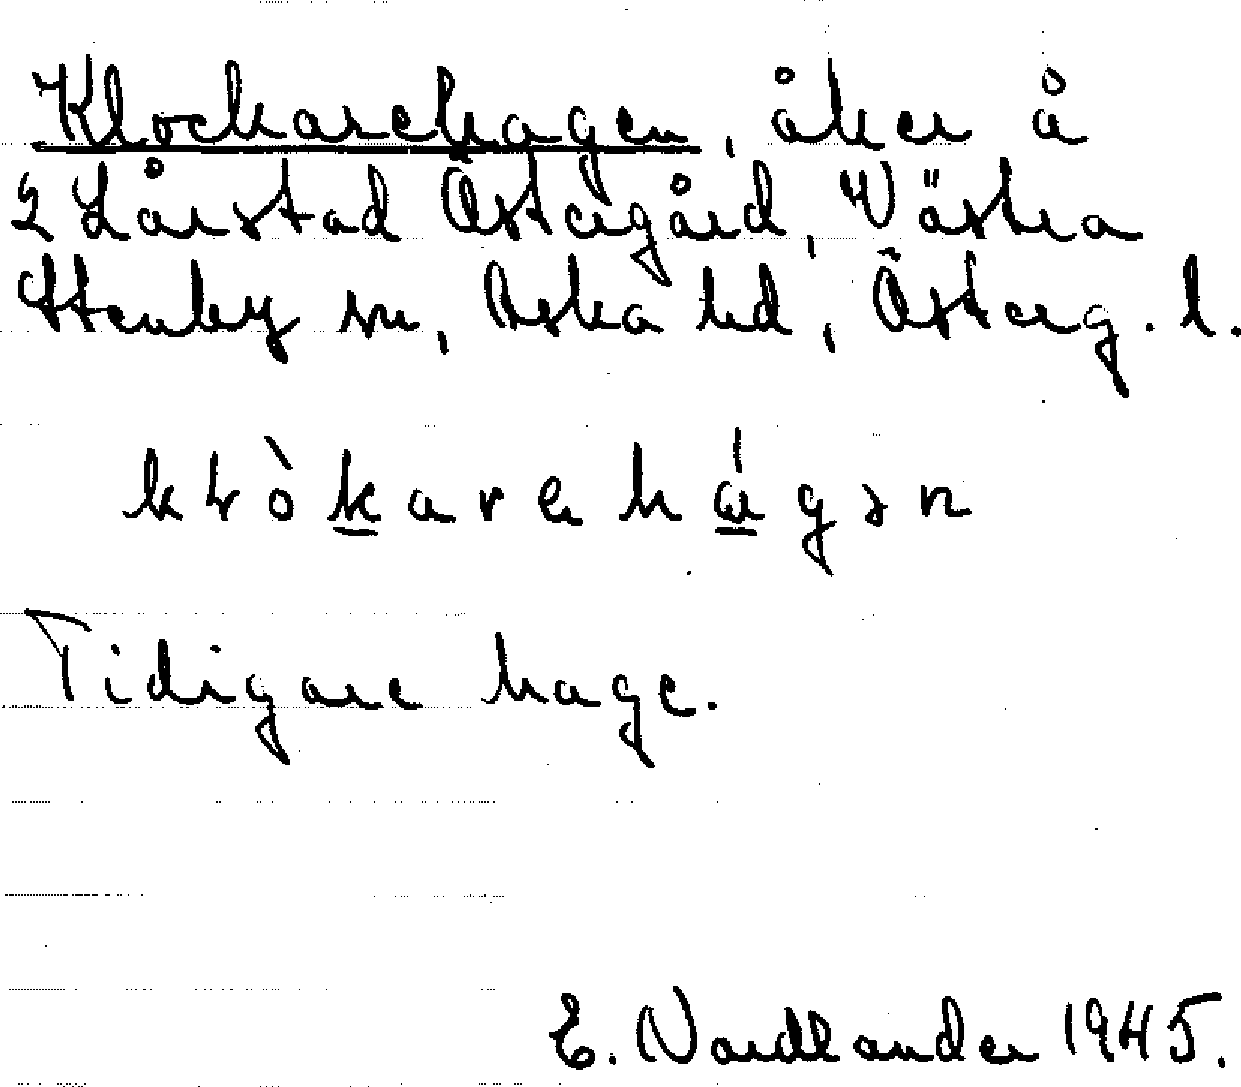 Klockarehagen, åker å
2 Lårstad Östergård, Västra
Stenby sn, Aska hd, Österg. l.
klòkarehágən
Tidigare hage.
E. Nordlander 1945.